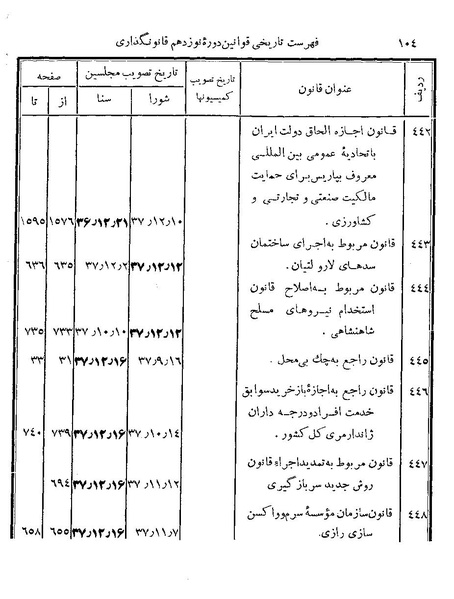 ۱۰۴ فهرست تاریخی قوانین دورهٔ نوزدهم قانونگذاری
ردیف عنوان قانون تاریخ تصویب کمیسیونها تاریخ تصویب مجلسین صفحه
شورا سنا از تا
۴۴۲ قانون اجازه الحاق دولت ایران
باتحادیهٔ عمومی بین المللی
معروف بپاریس برای حمایت
مالکیت صنعتی و تجارتی و
کشاورزی . ۳۷٫۱۲٫۱۰ ۳۶٫۱۲٫۲۱ ۱۵۷۶ ۱۵۹۵
۴۴۳ قانون مربوط به‌اجرای ساختمان
سدهای لار و لتیان. ۳۷٫۱۲٫۱۲ ۳۷٫۱۲٫۲ ۶۳۵ ۶۳۶
۴۴۴ قانون مربوط به‌اصلاح قانون
استخدام نیروهای مسلح
شاهنشاهی . ۳۷٫۱۲٫۱۲ ۳۷٫۱۰٫۱۰ ۷۳۳ ۷۳۵
۴۴۵ قانون راجع به‌چك بی‌محل . ۳۷٫۹٫۱۶ ۳۷٫۱۲٫۱۶ ۳۱ ۳۳
۴۴۶ قانون راجع به‌اجازهٔ بازخرید سوابق
خدمت افراد و درجه داران
ژاندارمری کل کشور . ۳۷٫۱۰٫۱۴ ۳۷٫۱۲٫۱۶ ۷۳۹ ۷۴۰
۴۴۷ قانون مربوط به‌تمدید اجراء قانون
روش جدید سربازگیری ۳۷٫۱۱٫۱۲ ۳۷٫۱۲٫۱۶ ۶۹۴
۴۴۸ قانون سازمان مؤسسهٔ سرم و واکسن
سازی رازی. ۳۷٫۱۱٫۷ ۳۷٫۱۲٫۱۶ ۶۵۵ ۶۵۸